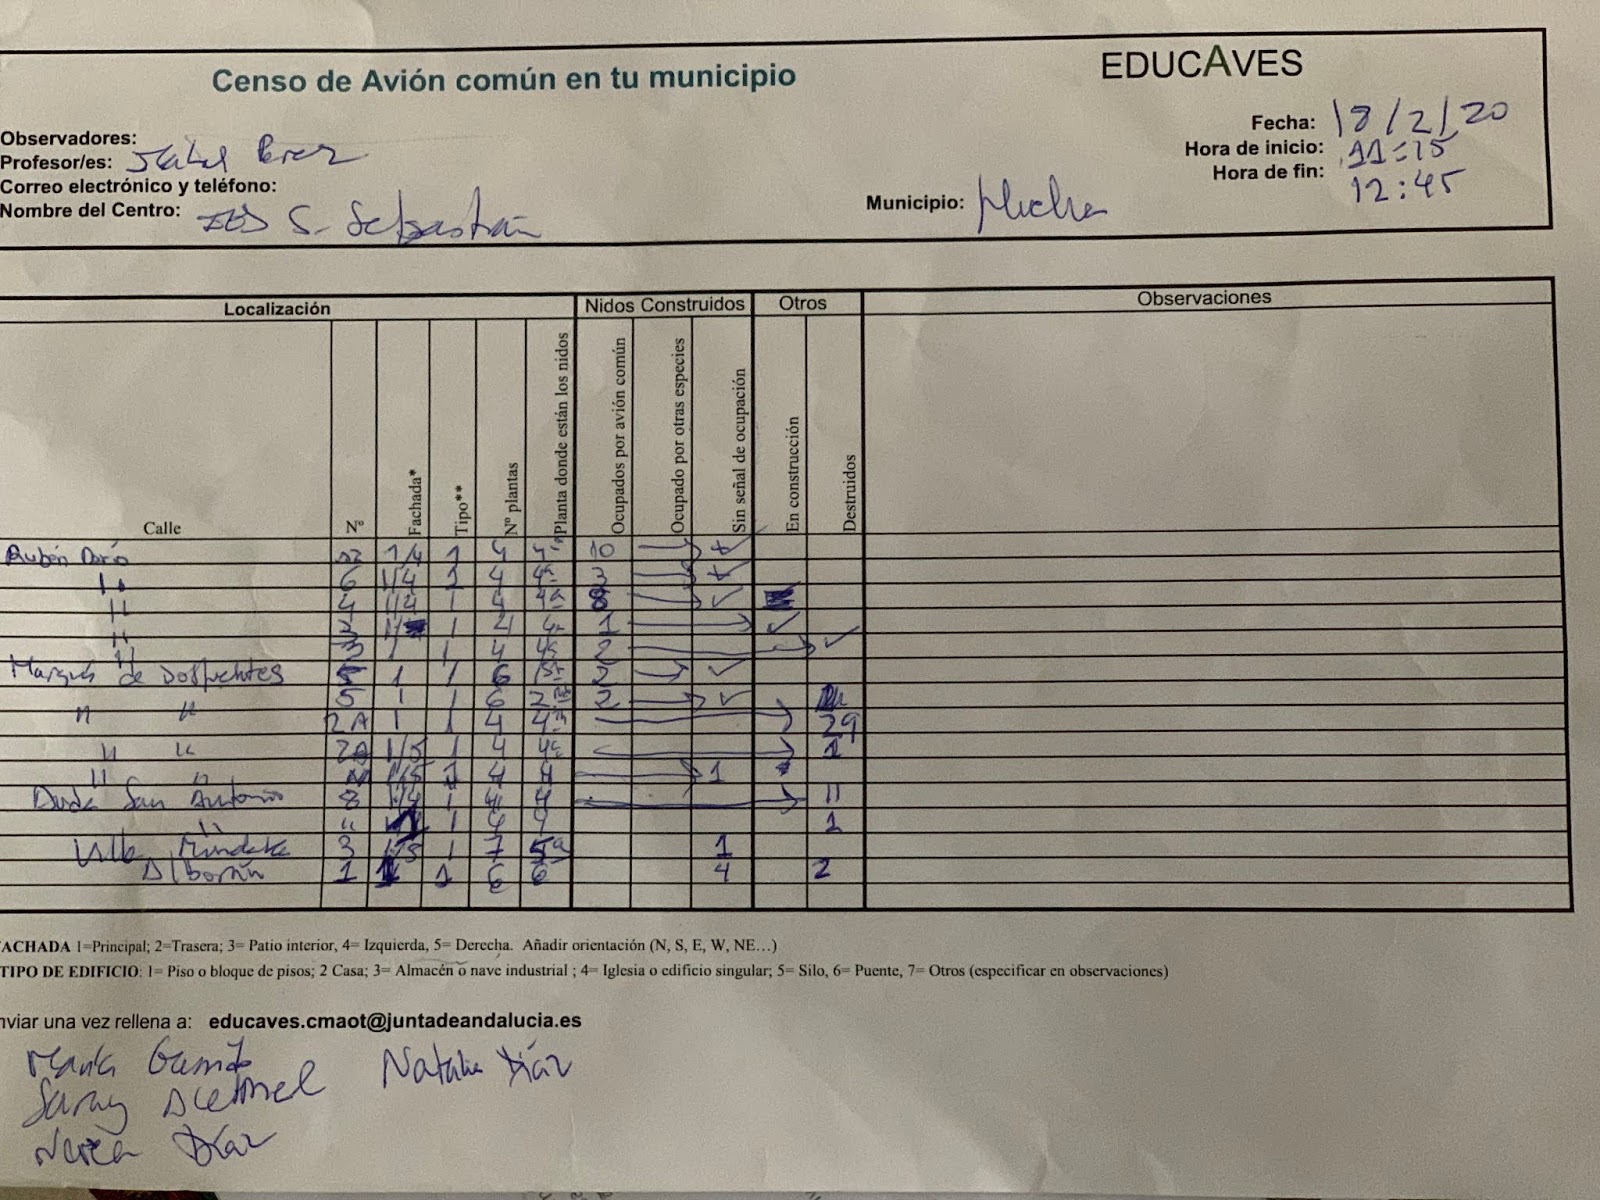 Censo de Avión común en tu municipio
EDUCAVES
Observadores:
Profesor/es: Isabel Pérez
Correo electrónico y teléfono:
Nombre del Centro: IES S. Sebastián
Municipio:
Fecha: 18/2/20
Hora de inicio: 11:15
Hora de fin: 12:45
Localización Nidos Construidos Otros Observaciones
Calle Nº Fachada* Tipo** Nº plantas Planta donde están los nidos Ocupados por avión común Ocupado por otras especies Sin señal de ocupación En construcción Destruidos
Rubén Darío 1/4 1 4 4ª 10
" 6 1/4 4 4ª 3
" 4 1/4 1 4 4ª 8 ✓
" 1 4 1 ✓
" 3 1 1 4 2 ✓
Marqués de Dosfuentes 1 1 6 ✓
5 1 1 6 2 ✓
" " 2A 1 1 4 4ª 29
" " 1/5 1 4 4ª 1
" " 1/5 1 4 4 1
San Antonio 8 1/4 1 4 4 11
" " 1 4 4 1
3 1/5 1 7 5ª 1
Alborán 1 1 1 6 6 4 2
FACHADA 1=Principal; 2=Trasera; 3= Patio interior, 4= Izquierda, 5= Derecha. Añadir orientación (N, S, E, W, NE…)
TIPO DE EDIFICIO: 1= Piso o bloque de pisos; 2 Casa; 3= Almacén o nave industrial ; 4= Iglesia o edificio singular; 5= Silo, 6= Puente, 7= Otros (especificar en observaciones)
nviar una vez rellena a: educaves.cmaot@juntadeandalucia.es
Natalia Díaz
Saray
Nerea Díaz